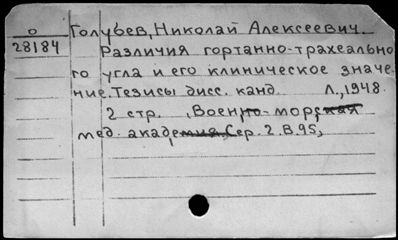 О Голубев, Николай Алексеевич.
28184 Различия гортанно-трахеально
го угла и его клиническое значе
ние. Тезисы дисс. канд. Л., 1948.
2 стр. Военно-морская
мед. академия, Сер. 2. В. 95,